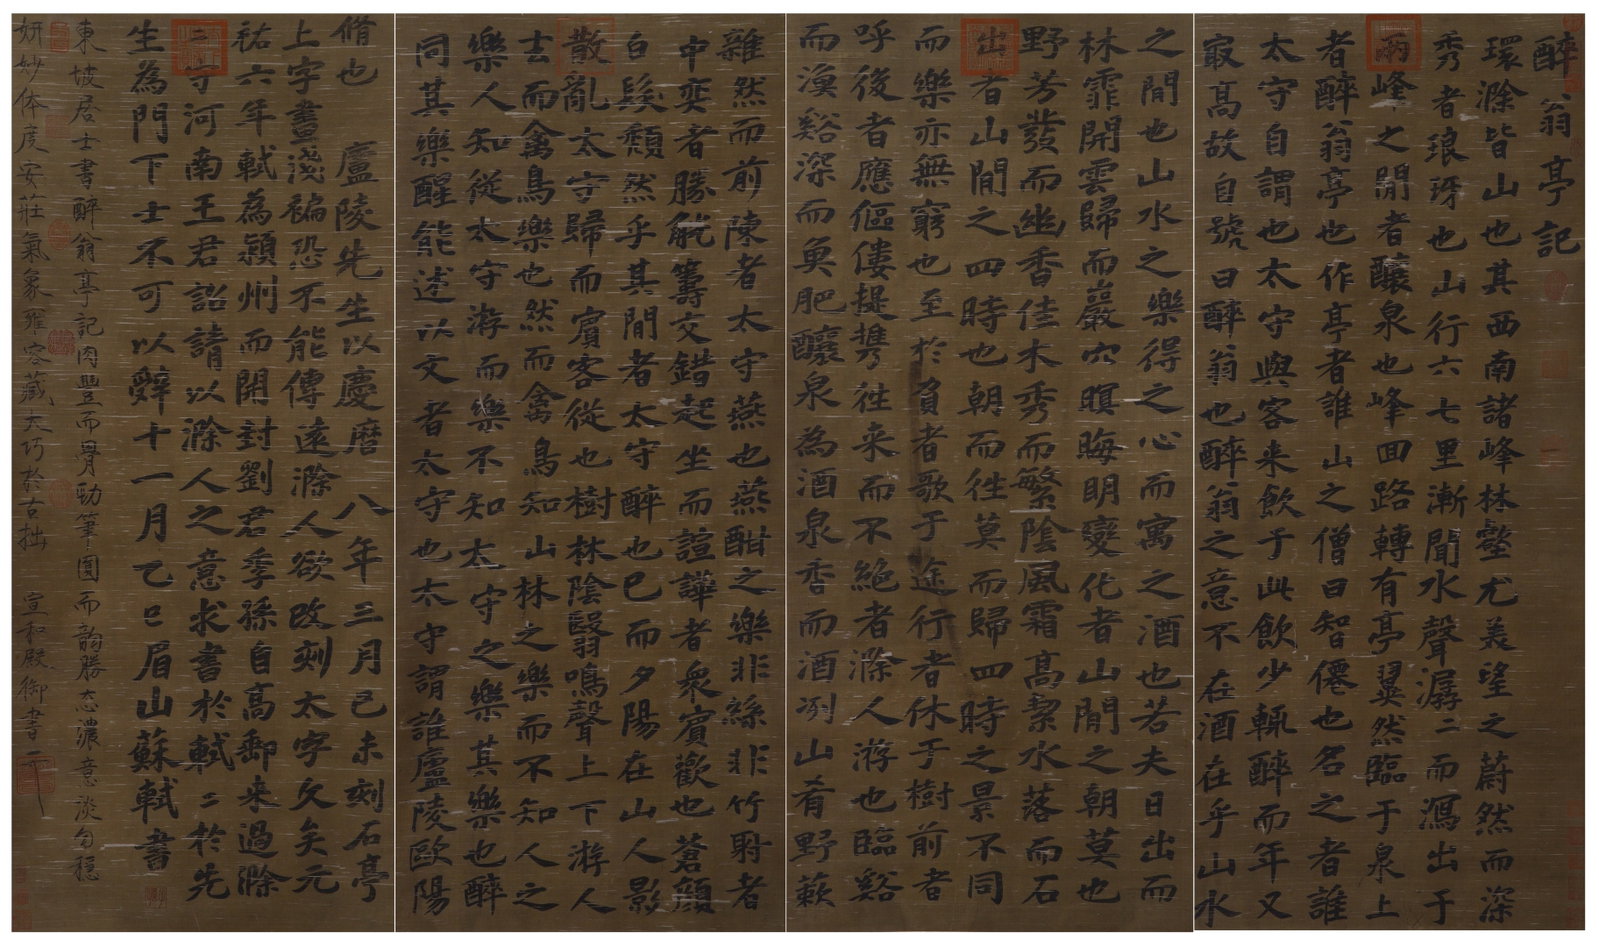 醉翁亭記
環滁皆山也其西南諸峰林壑尤美望之蔚然而深
秀者琅玡也山行六七里漸聞水聲潺二而瀉出于
兩峰之閒者釀泉也峰回路轉有亭翼然臨于泉上
者醉翁亭也作亭者誰山之僧曰智僊也名之者誰
太守自謂也太守與客来飲于此飲少輒醉而年又
冣高故自號曰醉翁也醉翁之意不在酒在乎山水
之間也山水之樂得之心而寓之酒也若夫日出而
林霏開雲歸而巖穴暝晦明變化者山間之朝莫也
野芳發而幽香佳木秀而繁陰風霜高絜水落而石
出者山間之四時也朝而往莫而歸四時之景不同
而樂亦無窮也至於負者歌于途行者休于樹前者
呼後者應傴僂提攜往来而不絕者滁人游也臨谿
而漁谿深而魚肥釀泉為酒泉香而酒冽山肴野蔌
雜然而前陳者太守燕也燕酣之樂非絲非竹射者
中奕者勝觥籌交錯起坐而諠譁者衆賓歡也蒼顏
白髮頹然乎其間者太守醉也已而夕陽在山人影
散亂太守歸而賓客從也樹林陰翳鳴聲上下游人
去而禽鳥樂也然而禽鳥知山林之樂而不知人之
樂人知從太守游而樂不知太守之樂其樂也醉
同其樂醒能述以文者太守也太守謂誰廬陵歐陽
脩也 廬陵先生以慶曆八年三月己未刻石亭
上字畫淺褊恐不能傳遠滁人欲改刻太字久矣元
祐六年軾為潁州而開封劉君季孫自高郵来過滁
二守河南王君詔請以滁人之意求書於軾二於先
生為門下士不可以辭十一月乙巳眉山蘇軾書
東坡居士書醉翁亭記肉豐而骨勁筆圓而韵勝态濃意淡勻穩
妍妙体度安莊氣象雍容藏大巧於古拙 宣和殿御書